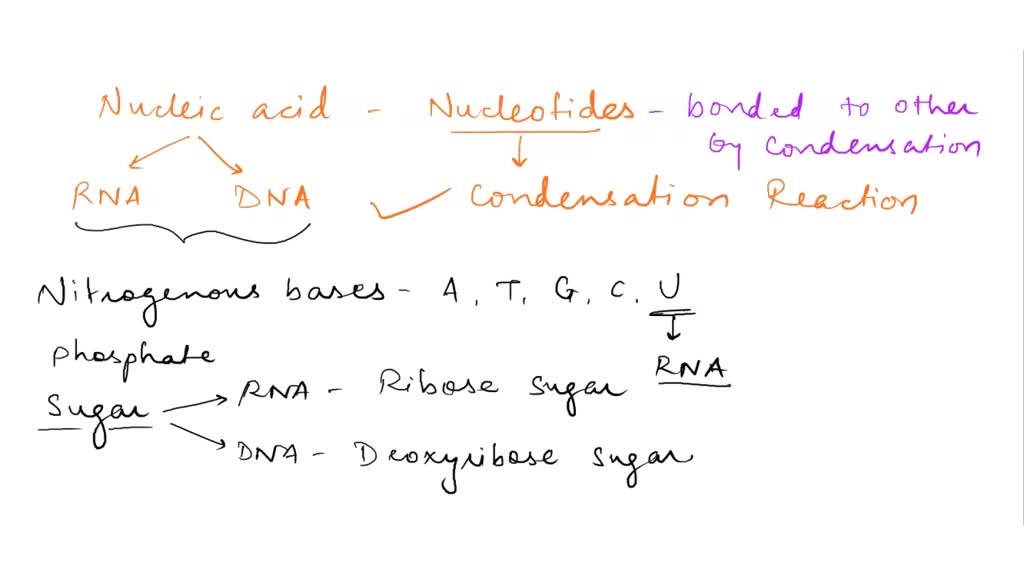 Nucleic acid - Nucleotides - bonded to other
by condensation
RNA DNA Condensation Reaction
Nitrogenous bases - A, T, G, C, U
RNA
phosphate
Sugar
RNA - Ribose sugar
DNA - Deoxyribose sugar